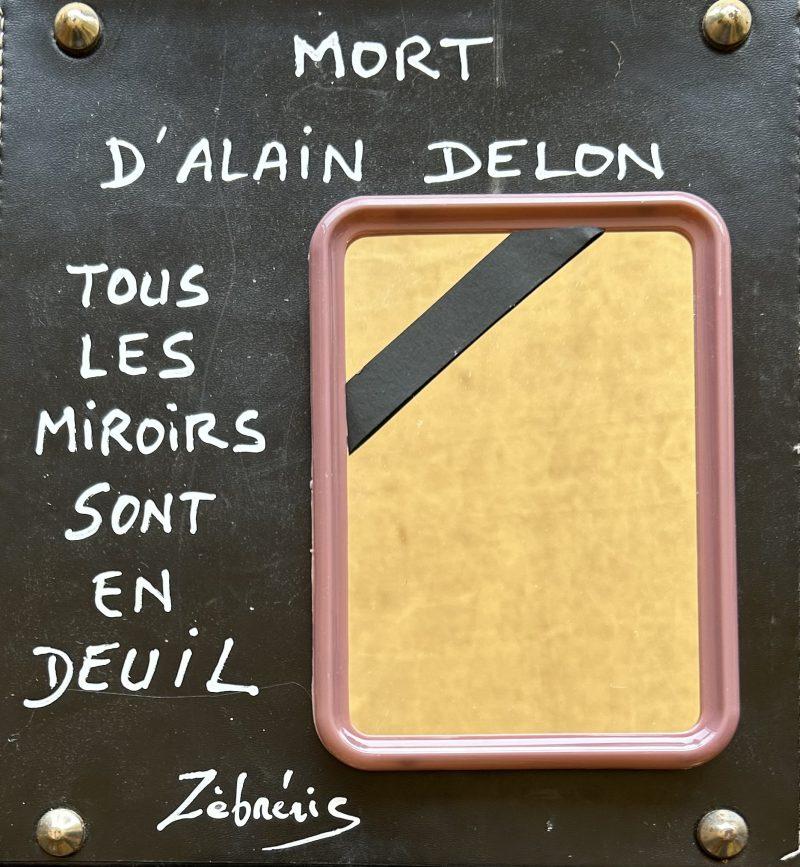 MORT
D'ALAIN DELON
TOUS
LES
MiROiRS
SONT
EN
DEUiL
Zèbréris